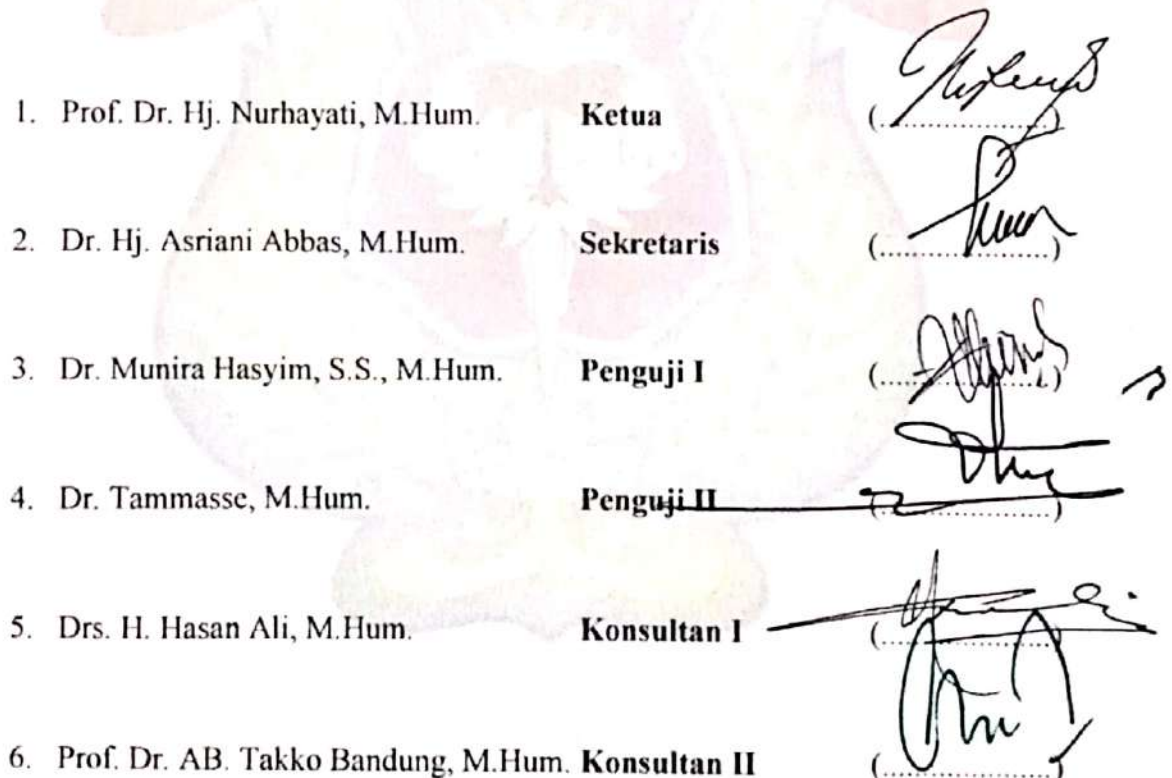 1. Prof. Dr. Hj. Nurhayati, M.Hum. Ketua (....................)
2. Dr. Hj. Asriani Abbas, M.Hum. Sekretaris (....................)
3. Dr. Munira Hasyim, S.S., M.Hum. Penguji I (....................)
4. Dr. Tammasse, M.Hum. Penguji II (....................)
5. Drs. H. Hasan Ali, M.Hum. Konsultan I (....................)
6. Prof. Dr. AB. Takko Bandung, M.Hum. Konsultan II (....................)